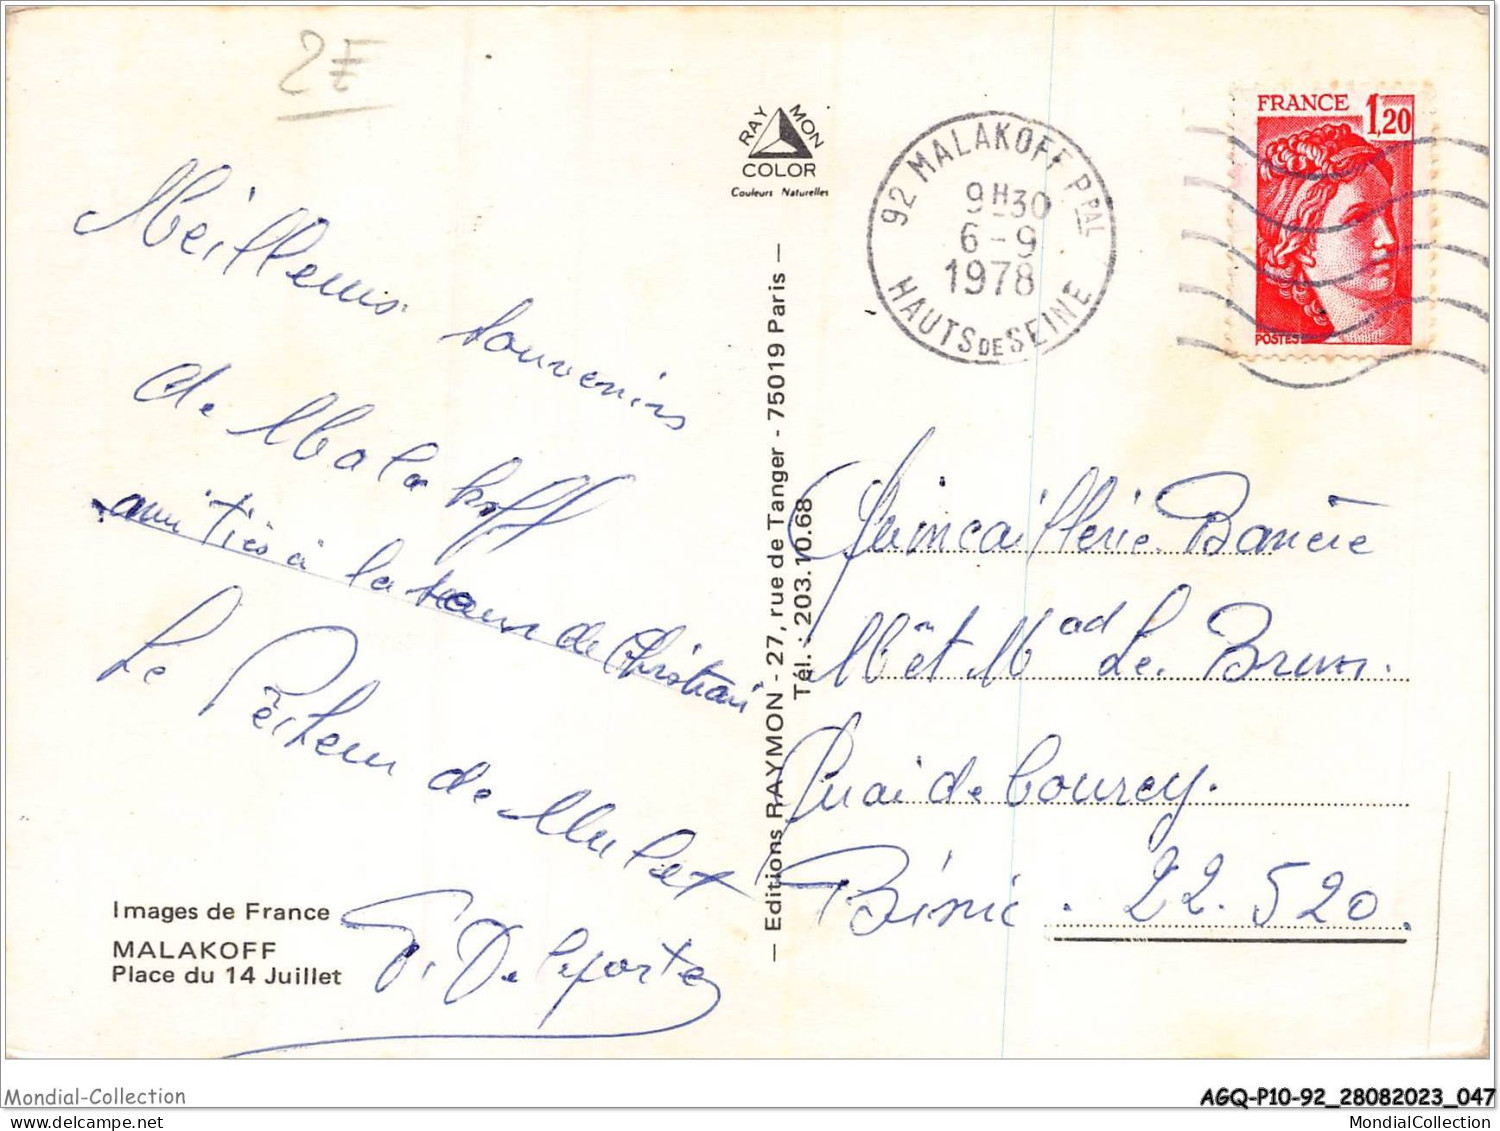 2F
Meilleurs souvenirs
de Malakoff
amitiés à la sœur de Christian
Le Pêcheur de Mulet
G. Delaporte
Images de France
MALAKOFF
Place du 14 Juillet
RAY MON
COLOR
Couleurs Naturelles
— Editions RAYMON - 27, rue de Tanger - 75019 Paris —
Tél. : 203.10.68
92 MALAKOFF PPAL
9H30
6-9
1978
HAUTS DE SEINE
FRANCE 1,20
POSTES
Quincaillerie Banière
Mr et Mad Le Brun.
Quai de Courcy.
Binic. 22.520.
Mondial-Collection
AGQ-P10-92_28082023_047
mondial-collection.net
MondialCollection